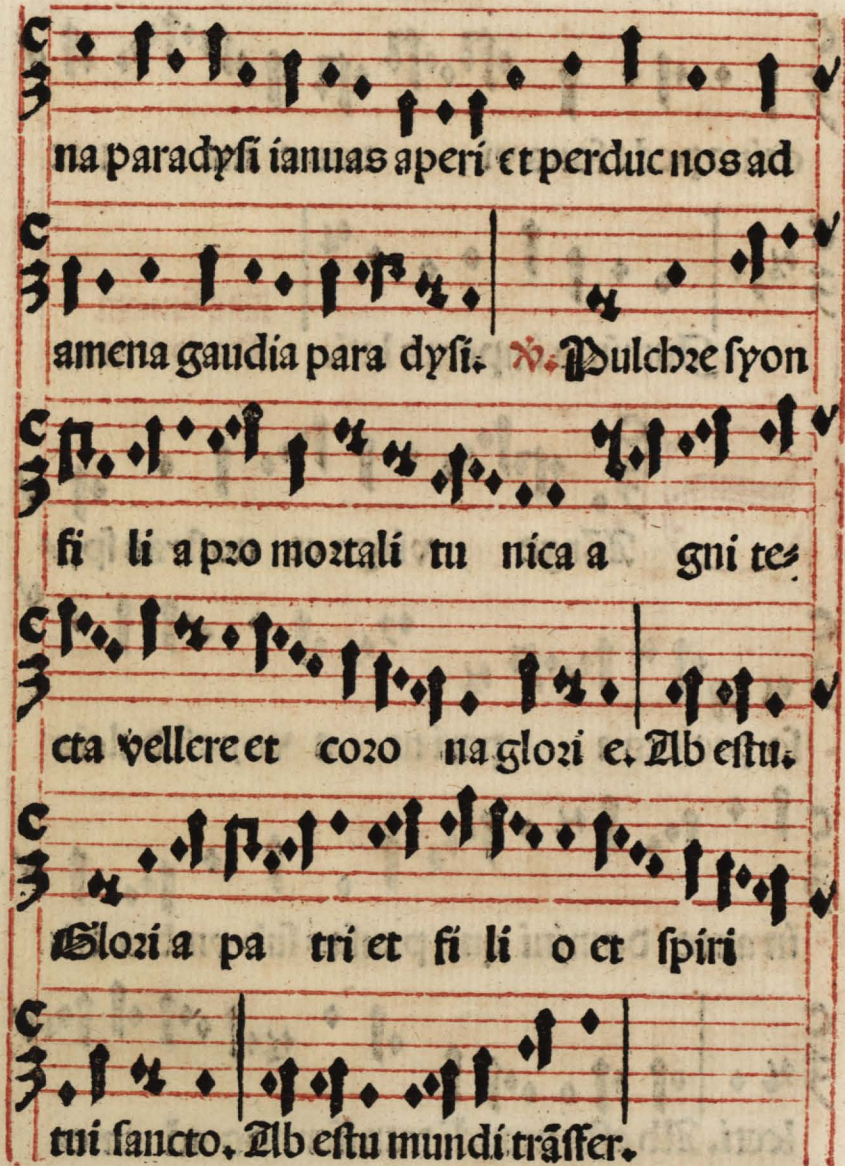 na paradyſi ianuas aperi et perduc nos ad
amena gaudia para dyſi. ℣. Pulchꝛe ſyon
fi li a pꝛo moꝛtali tu nica a gni te⸗
cta vellere et coꝛo na gloꝛi e. Ab eſtu.
Gloꝛi a pa tri et fi li o et ſpiri
tui ſancto. Ab eſtu mundi trãſfer.